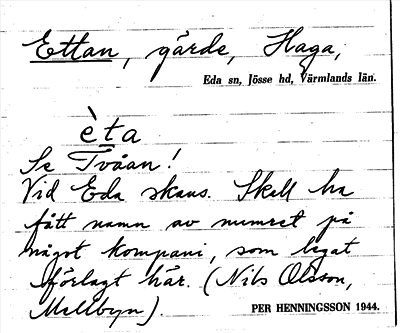 Ettan, gärde, Haga,
Eda sn, Jösse hd, Värmlands län.
èta
Se Tvåan!
Vid Eda skans. Skall ha
fått namn av numret på
något kompani, som legat
förlagt här. (Nils Olsson,
Mellbyn).
PER HENNINGSSON 1944.